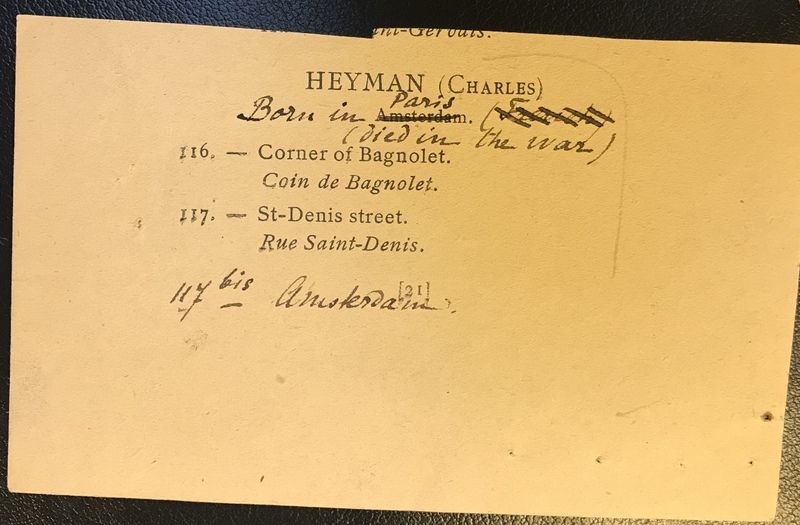 int-Gervais.
HEYMAN (CHARLES)
Born in Paris Amsterdam. (French)
(died in the war)
116. — Corner of Bagnolet.
Coin de Bagnolet.
117. — St-Denis street.
Rue Saint-Denis.
117 bis Amsterdam.
[21]